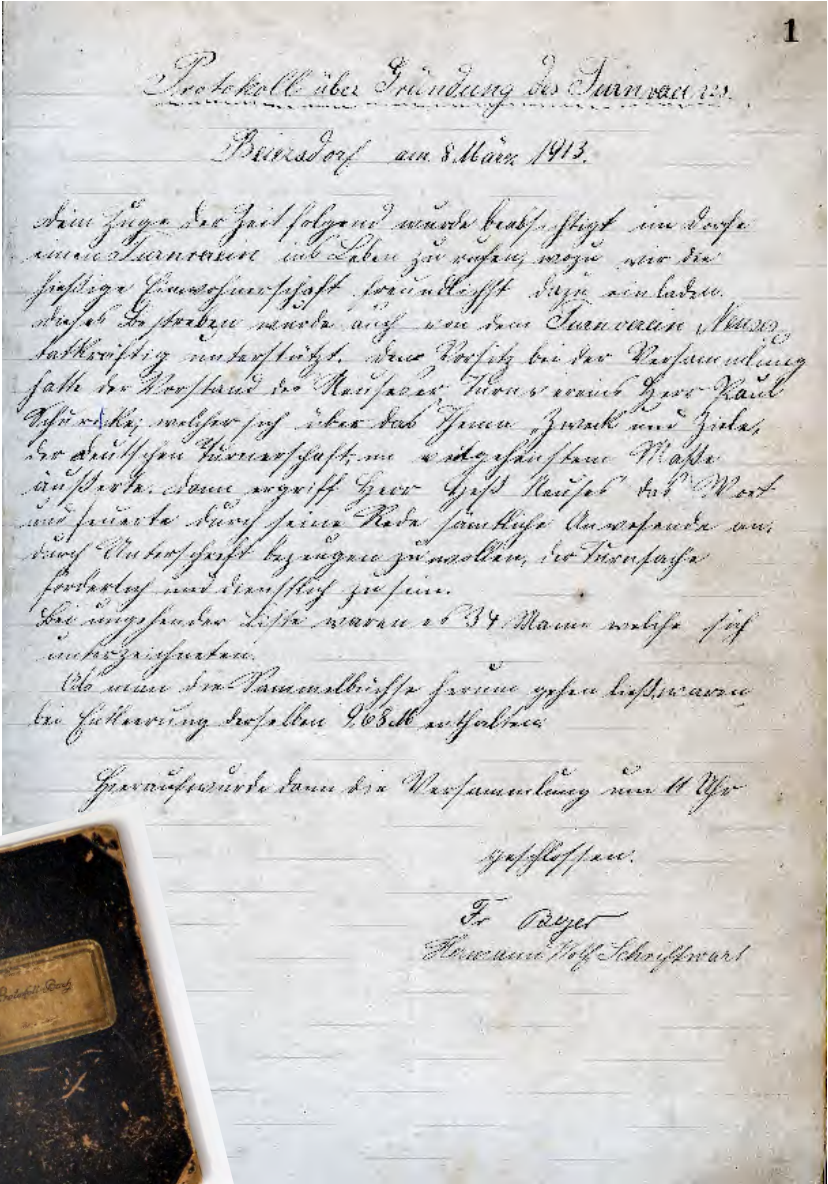 1
Protokoll über Gründung des Turnvereins.
Beiersdorf am 8. März 1913.
Dem Zuge der Zeit folgend wurde beabsichtigt im Dorfe
einen Turnverein ins Leben zu rufen, wozu wir die
hiesige Einwohnerschaft freundlichst dazu einladen.
Dieses Bestreben wurde auch von dem Turnverein Neuses
tatkräftig unterstützt. Den Vorsitz bei der Versammlung
hatte der Vorstand des Neuseser Turnvereins Herr Paul
Schüricke, welcher sich über das Thema „Zweck und Ziele,
der deutschen Turnerschaft, im weitgehenstem Maße
äußerte. Dann ergriff Herr Heß Neuses das Wort
und feuerte durch seine Rede sämtliche Anwesende an,
durch Unterschrift bezeugen zu wollen, der Turnsache
förderlich und dienstlich zu sein.
Bei umgehender Liste waren es 34 Mann welche sich
unterzeichneten.
Als man die Sammelbüchse herum gehen ließ, waren
bei Entleerung derselben 9,68 M enthalten.
Hierauf wurde dann die Versammlung um 11 Uhr
geschlossen.
Fr Beyer
Hermann Wolf Schriftwart
Protokoll-Buch